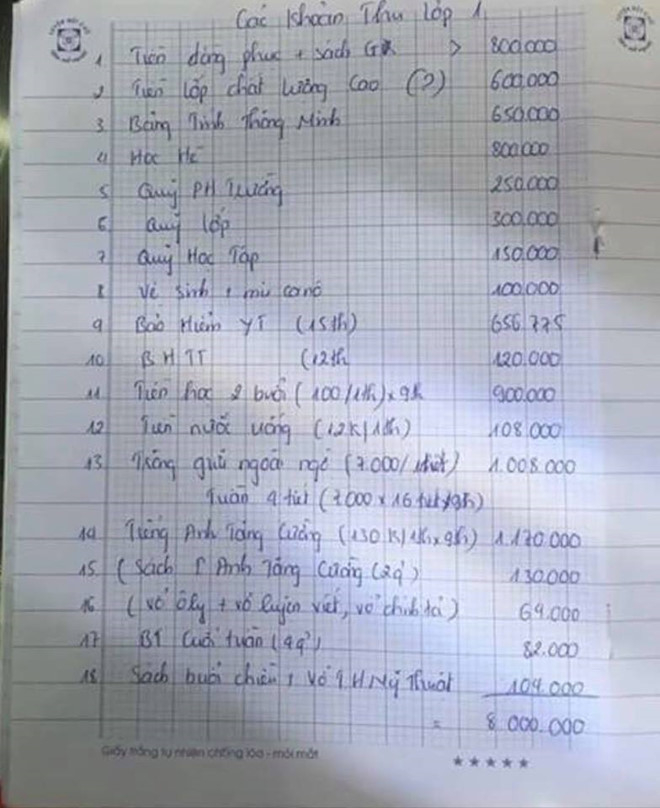 Các khoản Thu lớp 1
1 Tiền đồng phục + sách GK > 800.000
2 Tiền lớp chất lượng cao (?) 600.000
3 Bảng Tính Thông Minh 650.000
4 Học Hè 800.000
5 Quỹ PH Trường 250.000
6 Quỹ lớp 300.000
7 Quỹ Học Tập 150.000
8 Vệ sinh + mũ ca nô 100.000
9 Bảo Hiểm YT (15th) 656.775
10 BHTT (12th 120.000
11 Tiền học 2 buổi (100/1th)x9th 900.000
12 Tiền nước uống (12K/1th) 108.000
13 Trông giữ ngoài ngờ (7.000/1tiết) 1.008.000
Tuần 4 tiết (7.000 x 16 tiết/9th)
14 Tiếng Anh Tăng Cường (130K/1th x 9th) 1.170.000
15 (Sách T Anh Tăng Cường (2q') 130.000
16 (Vở ôly + vở luyện viết, vở chính tả) 69.000
17 BT Cuối tuần (4q') 82.000
18 Sách buổi chiều, vở T.H Mỹ Thuật 104.000
= 8.000.000
Giấy trắng tự nhiên chống lóa - mỏi mắt